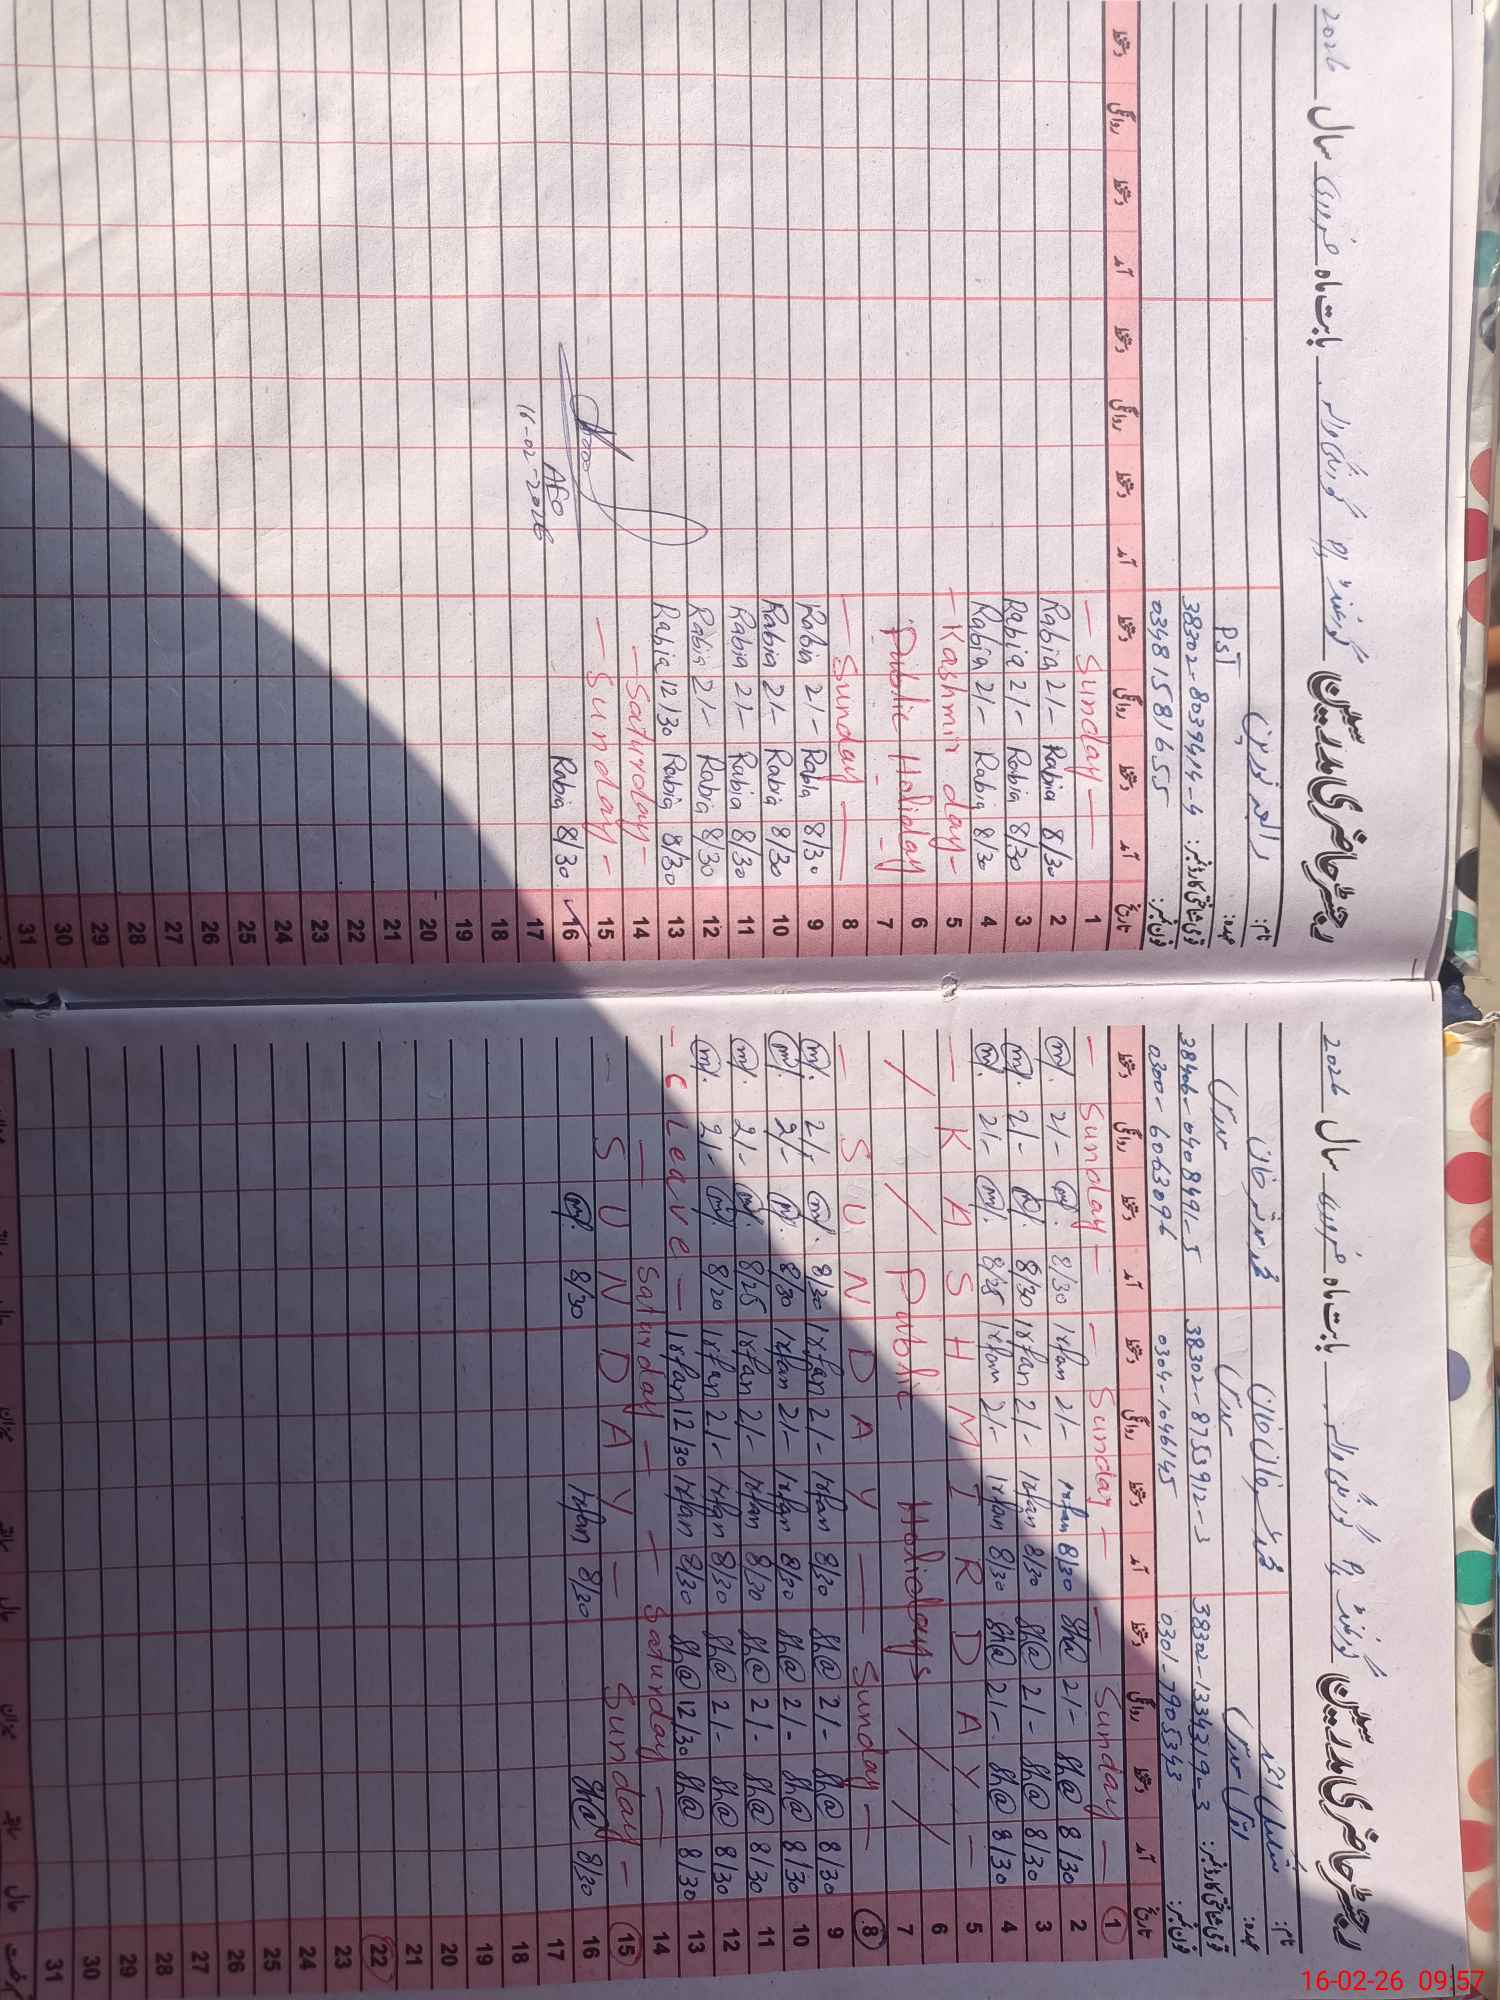 رجسٹر حاضری مدرسین گورنمنٹ بابت ماہ فروری سال 2026
نام:
عہدہ: PST
قومی شناختی کارڈ نمبر: 38302-8039414-4
فون نمبر: 03481581655
تاریخ آمد دستخط روانگی دستخط آمد دستخط روانگی دستخط آمد دستخط روانگی دستخط
1 — Sunday —
2 8/30 Rabia 2/- Rabia
3 8/30 Rabia 2/- Rabia
4 8/30 Rabia 2/- Rabia
5 — Kashmir day —
6 Public Holiday
7
8 — Sunday —
9 8/30 Rabia 2/- Rabia
10 8/30 Rabia 2/- Rabia
11 8/30 Rabia 2/- Rabia
12 8/30 Rabia 2/- Rabia
13 8/30 Rabia 12/30 Rabia
14 — Saturday —
15 — Sunday —
16 8/30 Rabia
AEO
17 16-02-2026
18
19
20
21
22
23
24
25
26
27
28
29
30
31
رجسٹر حاضری مدرسین گورنمنٹ بابت ماہ فروری سال 2026
نام:
عہدہ:
قومی شناختی کارڈ نمبر: 38302-1334319-3 38302-8753912-3 38406-0408491-5
فون نمبر: 0301-7905343 0304-1046145 0300-6063096
تاریخ آمد دستخط روانگی دستخط آمد دستخط روانگی دستخط آمد دستخط روانگی دستخط
1 — Sunday — — Sunday — — Sunday —
2 8/30 Sh@ 2/- Sh@ 8/30 Irfan 2/- Irfan 8/30 2/-
3 8/30 Sh@ 2/- Sh@ 8/30 Irfan 2/- Irfan 8/30 2/-
4 8/30 Sh@ 2/- Sh@ 8/30 Irfan 2/- Irfan 8/25 2/-
5 — KASHMIR DAY —
6 / / Public Holidays / /
7
8 — SUNDAY — Sunday —
9 8/30 Sh@ 2/- Sh@ 8/30 Irfan 2/- Irfan 8/30 2/-
10 8/30 Sh@ 2/- Sh@ 8/30 Irfan 2/- Irfan 8/30 2/-
11 8/30 Sh@ 2/- Sh@ 8/30 Irfan 2/- Irfan 8/25 2/-
12 8/30 Sh@ 2/- Sh@ 8/30 Irfan 2/- Irfan 8/20 2/-
13 8/30 Sh@ 12/30 Sh@ 8/30 Irfan 12/30 Irfan — C Leave —
14 — Saturday — — Saturday —
15 — SUNDAY — Sunday —
16 8/30 Sh@ 8/30 Irfan 8/30
17
18
19
20
21
22
23
24
25
26
27
28
29
30
31
16-02-26 09:57